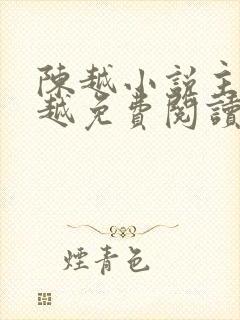 陳越小説主
越免費閱讀
煙青色